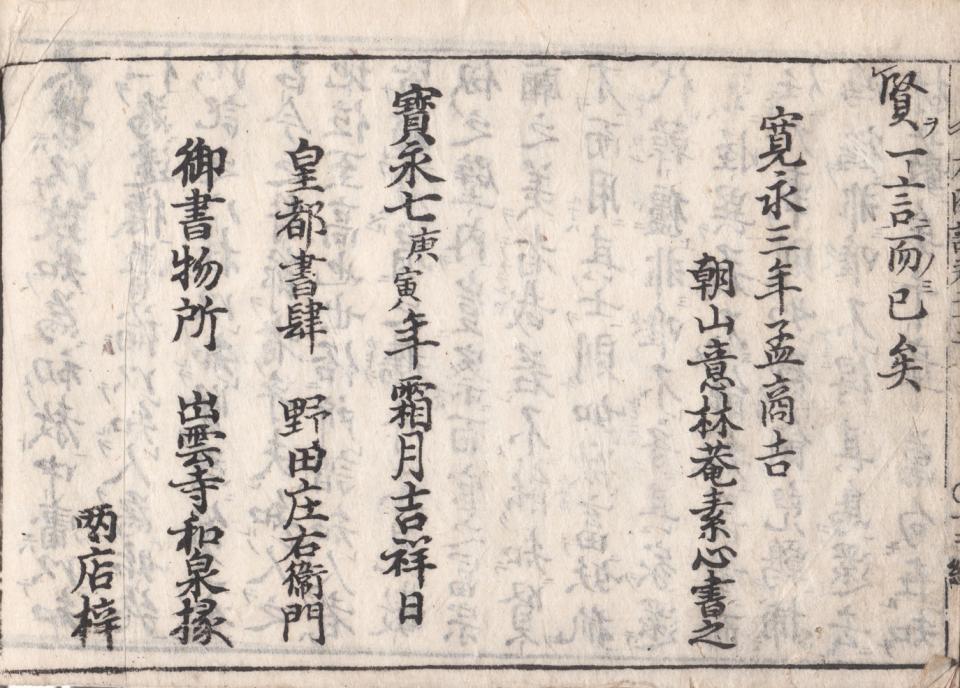 賢ヲ一言而已ノミ矣
寛永三年孟商吉
朝山意林菴素心書之
寳永七庚寅年霜月吉祥日
皇都書肆 野田庄右衛門
御書物所 出雲寺和泉掾
店梓